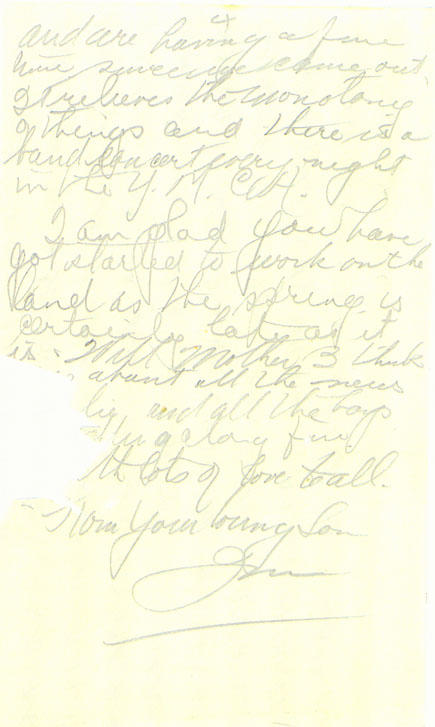 4
and are having a fine
time since we came out
It relieves the monotony
of things and there is a
band concert every night
in the Y. M. C. A.
I am glad you have
got started to work on the
land as the spring is
certainly late as it
is. Well Mother I think
is about all the news
and all the boys
along fine
th lots of love to all.
From Your loving Son
Jim